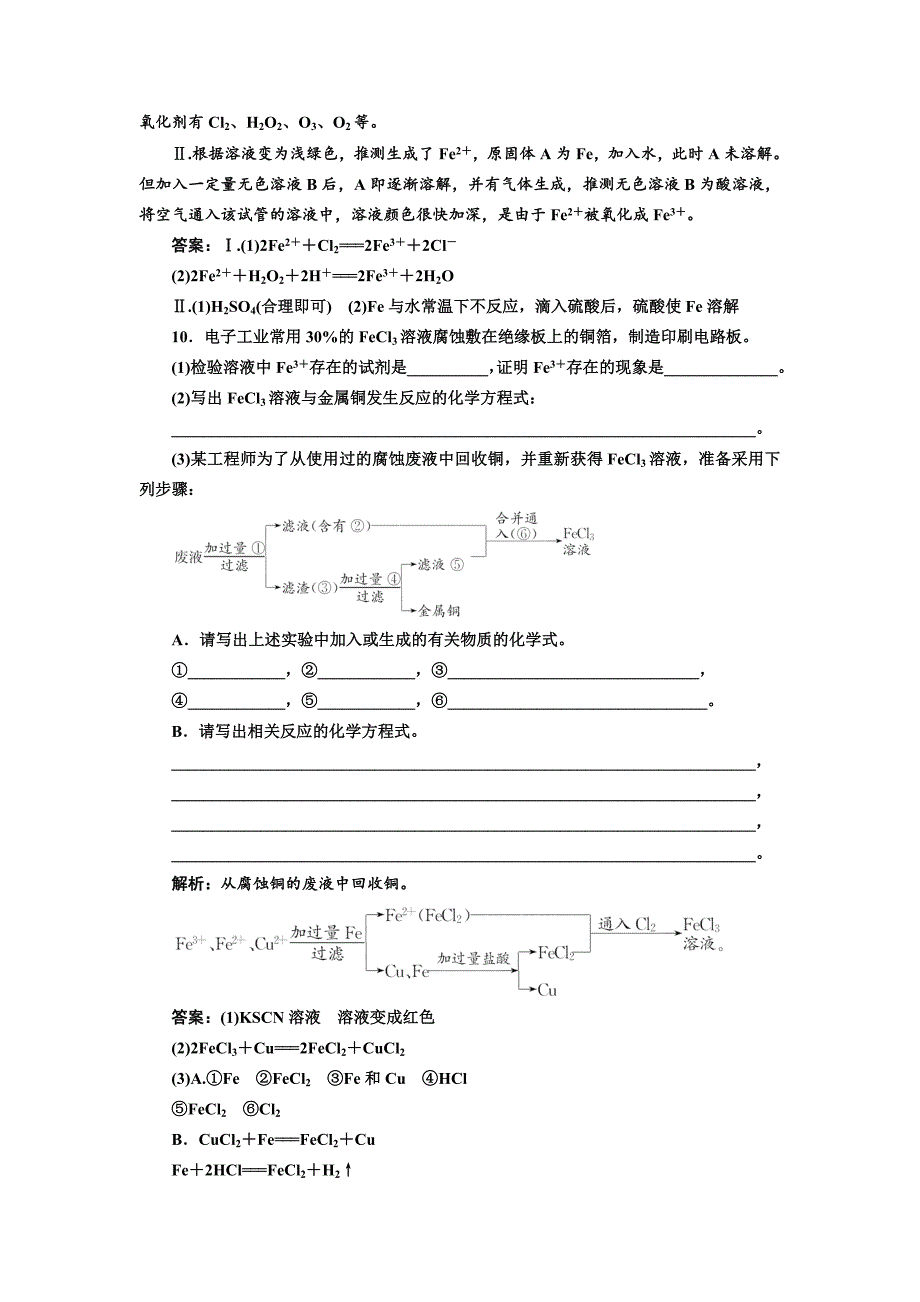 氧化剂有 Cl₂、H₂O₂、O₃、O₂等。
Ⅱ.根据溶液变为浅绿色，推测生成了 Fe²⁺，原固体 A 为 Fe，加入水，此时 A 未溶解。
但加入一定量无色溶液 B 后，A 即逐渐溶解，并有气体生成，推测无色溶液 B 为酸溶液，
将空气通入该试管的溶液中，溶液颜色很快加深，是由于 Fe²⁺被氧化成 Fe³⁺。
答案：Ⅰ.(1)2Fe²⁺＋Cl₂===2Fe³⁺＋2Cl⁻
(2)2Fe²⁺＋H₂O₂＋2H⁺===2Fe³⁺＋2H₂O
Ⅱ.(1)H₂SO₄(合理即可)　(2)Fe 与水常温下不反应，滴入硫酸后，硫酸使 Fe 溶解
10．电子工业常用 30%的 FeCl₃溶液腐蚀敷在绝缘板上的铜箔，制造印刷电路板。
(1)检验溶液中 Fe³⁺存在的试剂是__________，证明 Fe³⁺存在的现象是______________。
(2)写出 FeCl₃溶液与金属铜发生反应的化学方程式：
________________________________________________________________________。
(3)某工程师为了从使用过的腐蚀废液中回收铜，并重新获得 FeCl₃溶液，准备采用下
列步骤：
废液
加过量 ①
过滤
滤液(含有 ②)
滤渣(③)
加过量 ④
过滤
滤液 ⑤
金属铜
合并通
入(⑥)
FeCl₃
溶液
A．请写出上述实验中加入或生成的有关物质的化学式。
①____________，②____________，③_______________________________，
④____________，⑤____________，⑥________________________________。
B．请写出相关反应的化学方程式。
________________________________________________________________________，
________________________________________________________________________，
________________________________________________________________________，
________________________________________________________________________。
解析：从腐蚀铜的废液中回收铜。
Fe³⁺、Fe²⁺、Cu²⁺
加过量 Fe
过滤
Fe²⁺(FeCl₂)
Cu、Fe
加过量盐酸
FeCl₂
Cu
通入 Cl₂
FeCl₃
溶液。
答案：(1)KSCN 溶液　溶液变成红色
(2)2FeCl₃＋Cu===2FeCl₂＋CuCl₂
(3)A.①Fe　②FeCl₂　③Fe 和 Cu　④HCl
⑤FeCl₂　⑥Cl₂
B．CuCl₂＋Fe===FeCl₂＋Cu
Fe＋2HCl===FeCl₂＋H₂↑